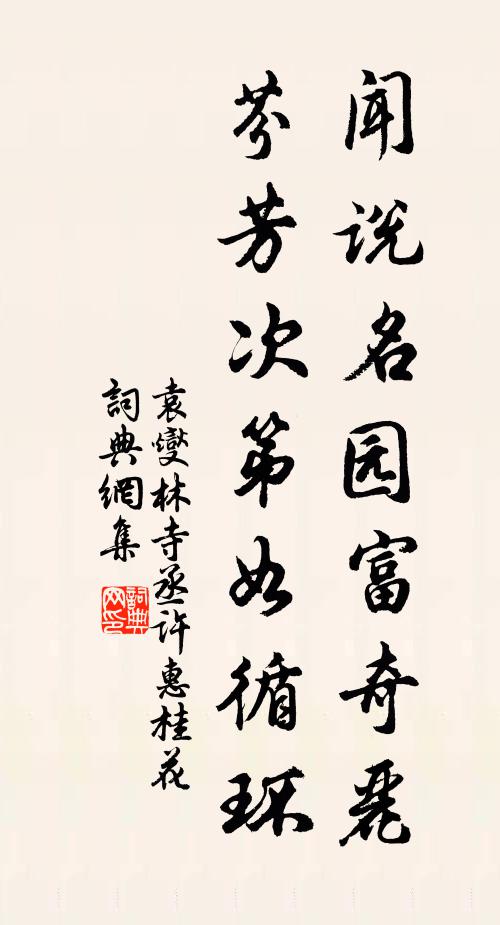 闻说名园富奇麗
芬芳次第如循环
袁燮林寺丞许惠桂花
詞典網集
詞典网印